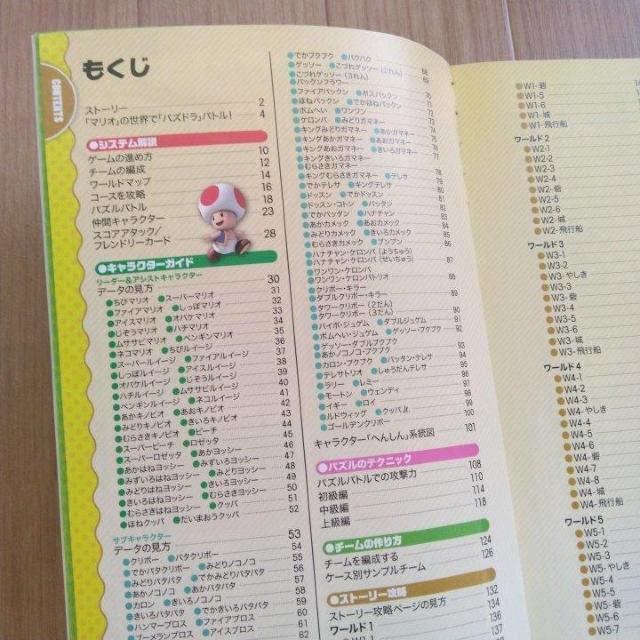 CONTENTS
もくじ
ストーリー 2
「マリオ」の世界で「パズドラ」バトル! 4
●システム解説
ゲームの進め方 10
チームの編成 12
ワールドマップ 14
コースを攻略 16
パズルバトル 18
仲間キャラクター 23
スコアアタック/
フレンドリーカード 28
●キャラクターガイド
リーダー&アシストキャラクター
データの見方 30
●ちびマリオ ●スーパーマリオ 31
●ファイアマリオ ●しっぽマリオ 32
●アイスマリオ ●オバケマリオ 33
●じぞうマリオ ●ハチマリオ 34
●ムササビマリオ ●ペンギンマリオ 35
●ネコマリオ ●ちびルイージ 36
●スーパールイージ ●ファイアルイージ 37
●しっぽルイージ ●アイスルイージ 38
●オバケルイージ ●じぞうルイージ 39
●ハチルイージ ●ムササビルイージ 40
●ペンギンルイージ ●ネコルイージ 41
●あかキノピオ ●あおキノピオ 42
●みどりキノピオ ●きいろキノピオ 43
●むらさきキノピオ ●ピーチ 44
●スーパーピーチ ●ロゼッタ 45
●スーパーロゼッタ ●あかヨッシー 46
●あかはねヨッシー ●みずいろヨッシー 47
●みずいろはねヨッシー ●みどりヨッシー 48
●みどりはねヨッシー ●きいろヨッシー 49
●きいろはねヨッシー ●むらさきヨッシー 50
●むらさきはねヨッシー ●クッパ 51
●ほねクッパ ●だいまおうクッパ 52
サブキャラクター
データの見方 53
●クリボー ●パタクリボー 54
●でかパタクリボー ●みどりノコノコ 55
●みどりパタパタ ●でかみどりパタパタ 56
●あかノコノコ ●あかパタパタ 57
●カロン ●きいろノコノコ 58
●きいろパタパタ ●でかきいろパタパタ 59
●ハンマーブロス ●ファイアブロス 60
●ブーメランブロス ●アイスブロス 61
62
●でかプクプク ●バクハク
●ゲッソー ●こづれゲッソー(2れん) 68
●こづれゲッソー(3れん) 69
●パックンフラワー
●ファイアパックン ●ボスパックン 70
●ほねパックン ●でかほねパックン 71
●ボムへい ●ワンワン 72
●ケロンパ ●みどりガマネー 74
●キングみどりガマネー ●あかガマネー 75
●キングあかガマネー ●あおガマネー 76
●キングあおガマネー ●きいろガマネー 77
●キングきいろガマネー
●むらさきガマネー 78
●キングむらさきガマネー ●テレサ 79
●でかテレサ ●キングテレサ 80
●ドッスン ●でかドッスン 81
●ドッスン・コトン ●バッタン 82
●でかバッタン ●ハナチャン 83
●あかカメック ●あおカメック 84
●みどりカメック ●きいろカメック 85
●むらさきカメック ●ブンブン 86
●ハナチャン・ケロンパ(ようちゅう)
●ハナチャン・ケロンパ(せいちゅう) 87
●ワンワン・ケロンパ
●ワンワン・ケロンパトリオ 88
●キラー・キラー
●ダブルクリボー・キラー 89
●タワークリボー(2だん) 90
●タワークリボー(3だん) 91
●パイポ・ジュゲム ●ダブルジュゲム 92
●ボムへい・ジュゲム ●ゲッソー・プクプク 93
●ゲッソー・ダブルプクプク
●あかノコノコ・プクプク 94
●カロン・プクプク ●バッタン・テレサ 95
●テレサトリオ ●しゅうだんテレサ 96
●ラリー ●レミー 97
●モートン ●ウェンディ 98
●イギー ●ロイ 99
●ルドウィッグ ●クッパJr. 100
●ゴールデンクリボー
キャラクター「へんしん」系統図 101
●パズルのテクニック
パズルバトルでの攻撃力 108
初級編 110
中級編 114
上級編 118
●チームの作り方
チームを編成する 124
ケース別サンプルチーム 126
●ストーリー攻略
ストーリー攻略ページの見方 132
ワールド1 134
136
137
●W1-砦
●W1-5
●W1-6
●W1-城
●W1-飛行船
ワールド2
●W2-1
●W2-2
●W2-3
●W2-4
●W2-砦
●W2-5
●W2-6
●W2-城
●W2-飛行船
ワールド3
●W3-1
●W3-2
●W3-やしき
●W3-3
●W3-砦
●W3-4
●W3-5
●W3-6
●W3-城
●W3-飛行船
ワールド4
●W4-1
●W4-2
●W4-3
●W4-やしき
●W4-4
●W4-5
●W4-砦
●W4-6
●W4-7
●W4-8
●W4-城
●W4-飛行船
ワールド5
●W5-1
●W5-2
●W5-3
●W5-砦
●W5-4
●W5-5